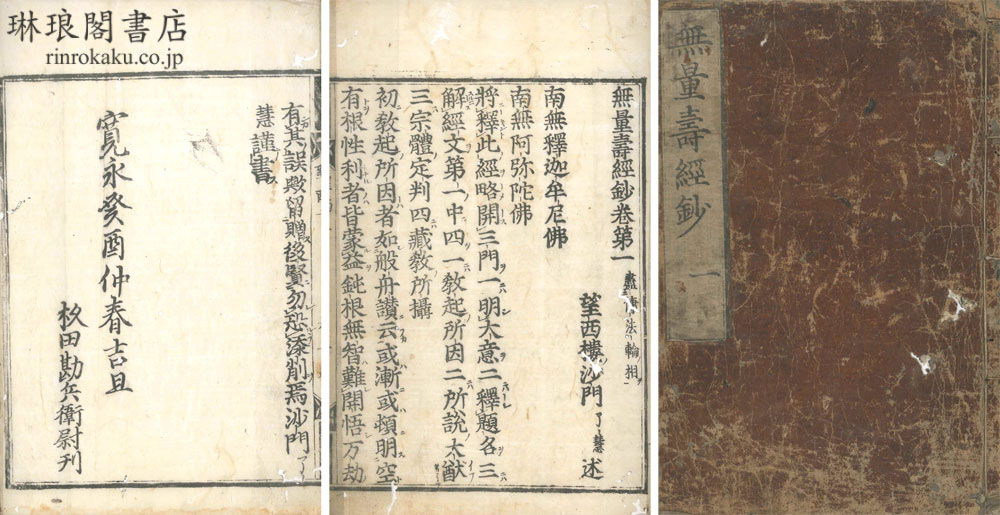 琳琅閣書店
rinrokaku.co.jp
無量壽經鈔 一
無量壽經鈔卷第一 盡傳法輪相
望西樓沙門 了慧 述
南無釋迦牟尼佛
南無阿弥陀佛
將釋此經略開三門一明大意二釋題各三
解經文第一中四一教起所因二所說大猷
三宗體定判四藏教所攝
初教起所因者如般舟讃云或漸或頓明空
有根性利者皆蒙益鈍根無智難開悟万劫
有其誤欤留贈後賢勿恐添削焉沙門了
慧謹書
寛永癸酉仲春吉旦
杦田勘兵衛尉刊